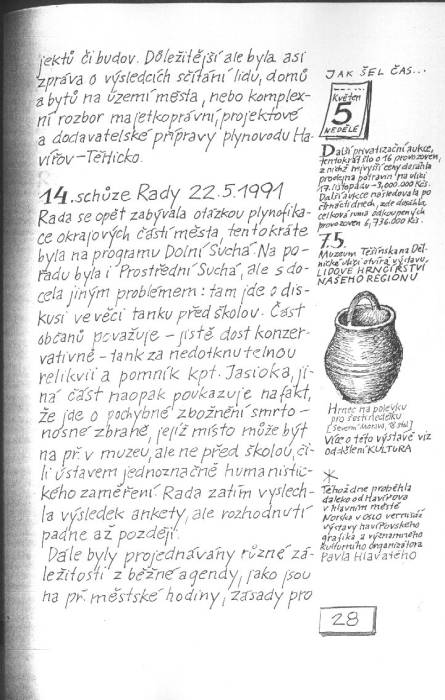 jektů či budov. Důležitější ale byla asi
zpráva o výsledcích sčítání lidu, domů
a bytů na území města, nebo komplex-
ní rozbor majetkoprávní, projektové
a dodavatelské přípravy plynovodu Ha-
vířov-Těrlicko.
14. schůze Rady 22.5.1991
Rada se opět zabývala otázkou plynofika-
ce okrajových částí města, tentokráte
byla na programu Dolní Suchá. Na po-
řadu byla i Prostřední Suchá, ale s do-
cela jiným problémem: tam jde o dis-
kusi ve věci tanku před školou. Část
občanů považuje - jistě dost konzer-
vativně - tank za nedotknutelnou
relikvii a pomník kpt. Jasioka, ji-
ná část naopak poukazuje na fakt,
že jde o pochybné zbožnění smrto-
nosné zbraně, jejíž místo může být
na př. v muzeu, ale ne před školou, či-
li ústavem jednoznačně humanistic-
kého zaměření. Rada zatím vyslech-
la výsledek ankety, ale rozhodnutí
padne až později.
Dále byly projednávány různé zá-
ležitosti z běžné agendy, jako jsou
na př. městské hodiny, zásady pro
JAK ŠEL ČAS...
Květen
5
NEDĚLE
Další privatizační aukce,
tentokrát šlo o 16 provozoven,
z nichž nejvyšší ceny dosáhla
prodejna potravin na ulici
17. listopadu - 3,000.000 Kčs.
Další aukce následovala po
čtrnácti dnech, zde dosáhla
celková suma odkoupených
provozoven 6,736.000 Kčs.
7.5.
Muzeum Těšínska na Děl-
nické ulici otvírá výstavu
LIDOVÉ HRNČÍŘSTVÍ
NAŠEHO REGIONU
Hrnec na polévku
pro šestinedělku
[Severní Morava, 18. stol.]
Více o této výstavě viz
oddělení KULTURA
*
Téhož dne proběhla
daleko od Havířova
v hlavním městě
Norska v Oslo vernisáž
výstavy havířovského
grafika a významného
kulturního organizátora
Pavla Hlavatého
28